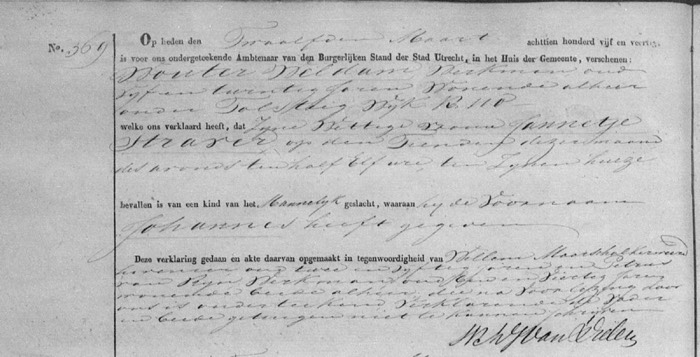 No. 369
Op heden den Twaalfden Maart achttien honderd vijf en veertig
is voor ons ondergeteekende Ambtenaar van den Burgerlijken Stand der Stad Utrecht, in het Huis der Gemeente, verschenen:
Wouter Veldam Werkman oud
vyf en twintig Jaren Wonende alhier
onder Tolsteeg Wyk R. 110
welke ons verklaard heeft, dat Zyne Wettige Vrouw Jannetje
Straver op den Tienden dezer maand
des avonds ten half Elf ure te Zynen huize
bevallen is van een kind van het Mannelyk geslacht, waaraan hy de Voornaam
Johannes heeft gegeven
Deze verklaring gedaan en akte daarvan opgemaakt in tegenwoordigheid van Willem Maarschalkerweerd
oud twee en vyftig Jaren en Petrus
van Ryn Werkman oud Jaren
wonende beide alhier deze na Voorlezing door
ons is onderteekend Verklarende de Vader
en beide getuigen niet te kunnen schryven